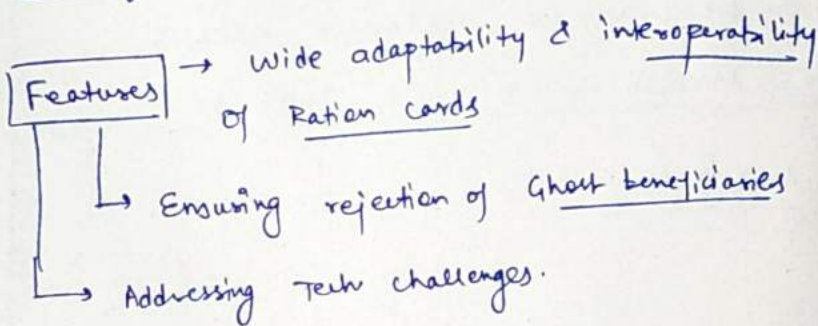 Features → Wide adaptability & interoperability
of Ration cards
→ Ensuring rejection of Ghost beneficiaries
→ Addressing Tech challenges.